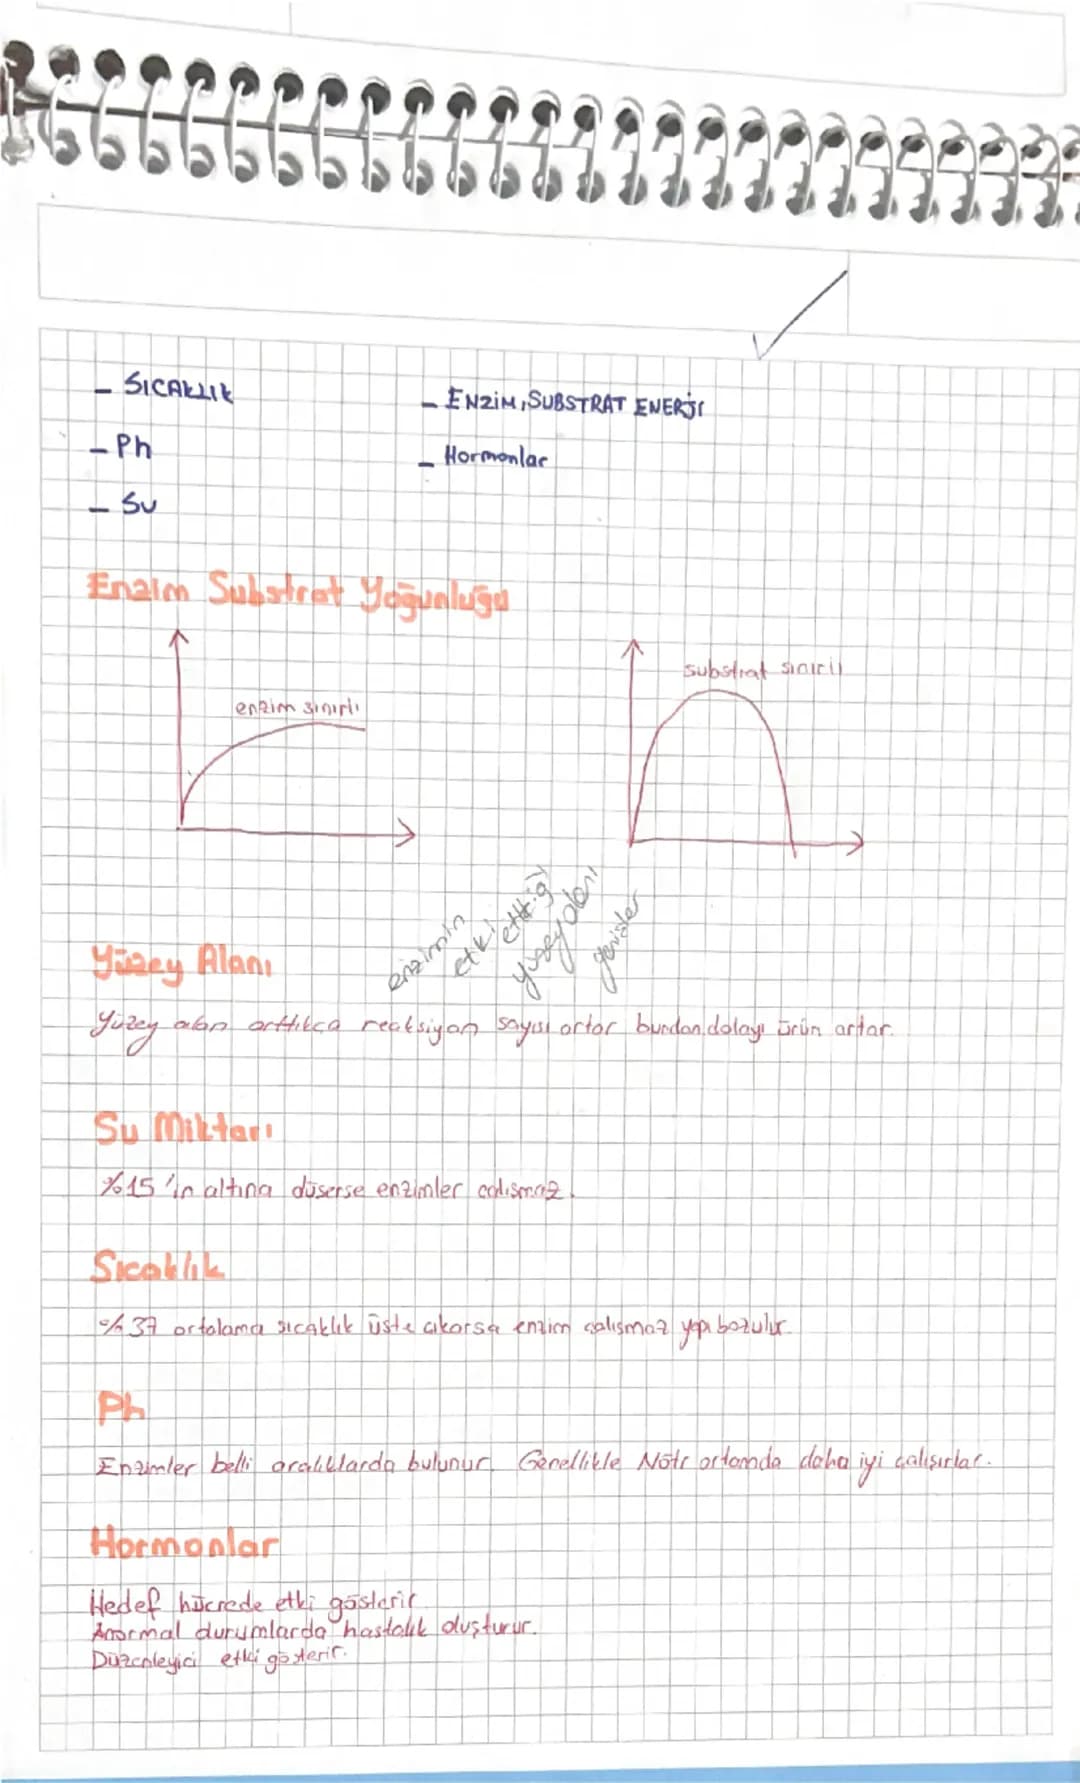 - SICAKLIK
- Ph
- Su
- ENZİM, SUBSTRAT ENERJİ
- Hormonlar
Enzim Substrat Yoğunluğu
enzim sınırlı
substrat sınırlı
enzimin
etki ettiği
yüzey alanı
genişler
Yüzey Alanı
Yüzey alan arttıkça reaksiyon sayısı artar bundan dolayı ürün artar.
Su Miktarı
%15 'in altına düserse enzimler calısmaz.
Sıcaklık
%37 ortalama sıcaklık üste cıkarsa enzim calısmaz yapı bozulur.
Ph
Enzimler belli aralıklarda bulunur. Genellikle Nötr ortamda daha iyi çalışırlar.
Hormonlar
Hedef hücrede etki gösterir.
Anormal durumlarda hastalık oluşturur.
Düzenleyici etki gösterir.